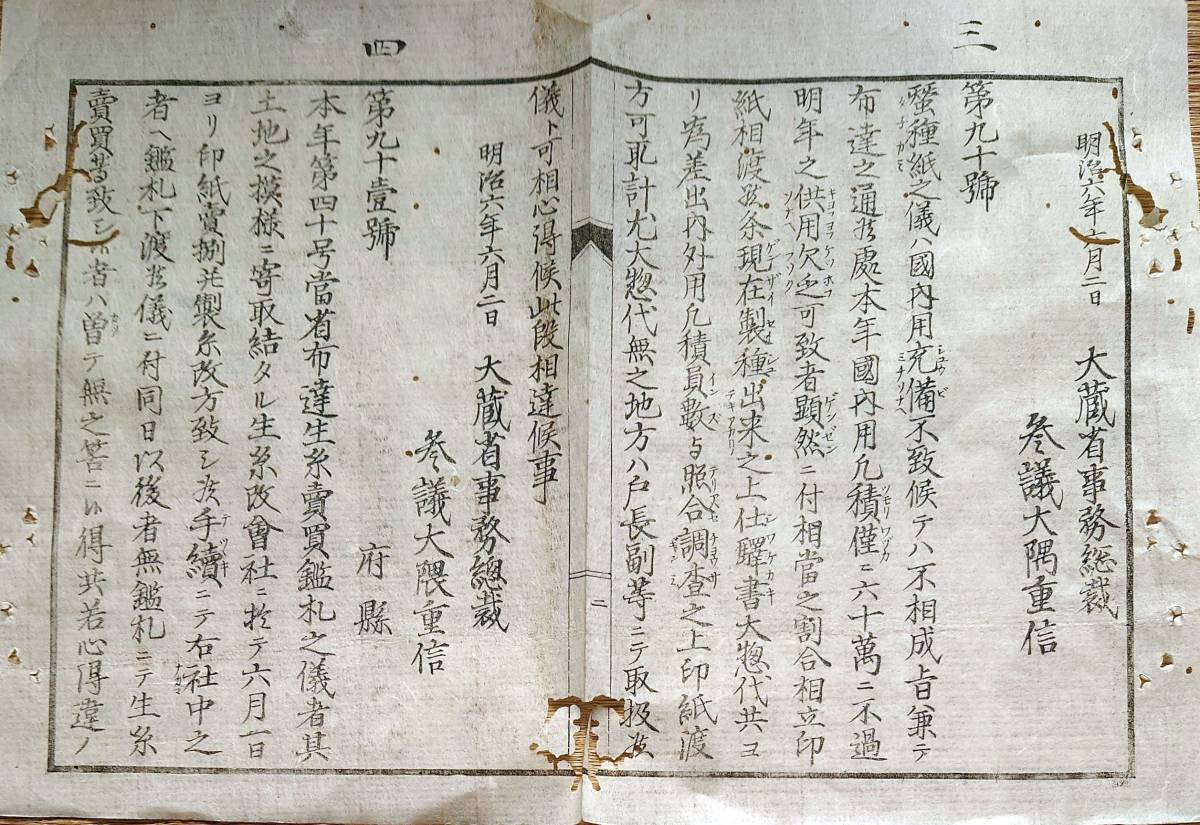 三
明治六年六月二日　大蔵省事務総裁
参議大隈重信
第九十號
蠶種紙之儀ハ國內用充備不致候テハ不相成旨兼テ
布達之通候處本年國內用凡積僅ニ六十萬ニ不過
明年之供用欠乏可致者顕然ニ付相當之割合相立印
紙相渡候条現在製種出来之上仕驛書大惣代共ヨ
リ為差出內外用凡積員數与照合調查之上印紙渡
方可取計尤大惣代無之地方ハ戸長副等ニテ取扱候
儀ト可相心得候此段相達候事
明治六年六月二日　大蔵省事務總裁
参議大隈重信
四
第九十壹號
府縣
本年第四十号當省布達生糸賣買鑑札之儀者其
土地之摸様ニ寄取結タル生糸改會社ニ於テ六月一日
ヨリ印紙賣捌并製糸改方致シ候手續ニテ右社中之
者ヘ鑑札下渡候儀ニ付同日以後者無鑑札ニテ生糸
賣買等致シ候者ハ曽テ無之筈ニ候得共若心得違ノ
二